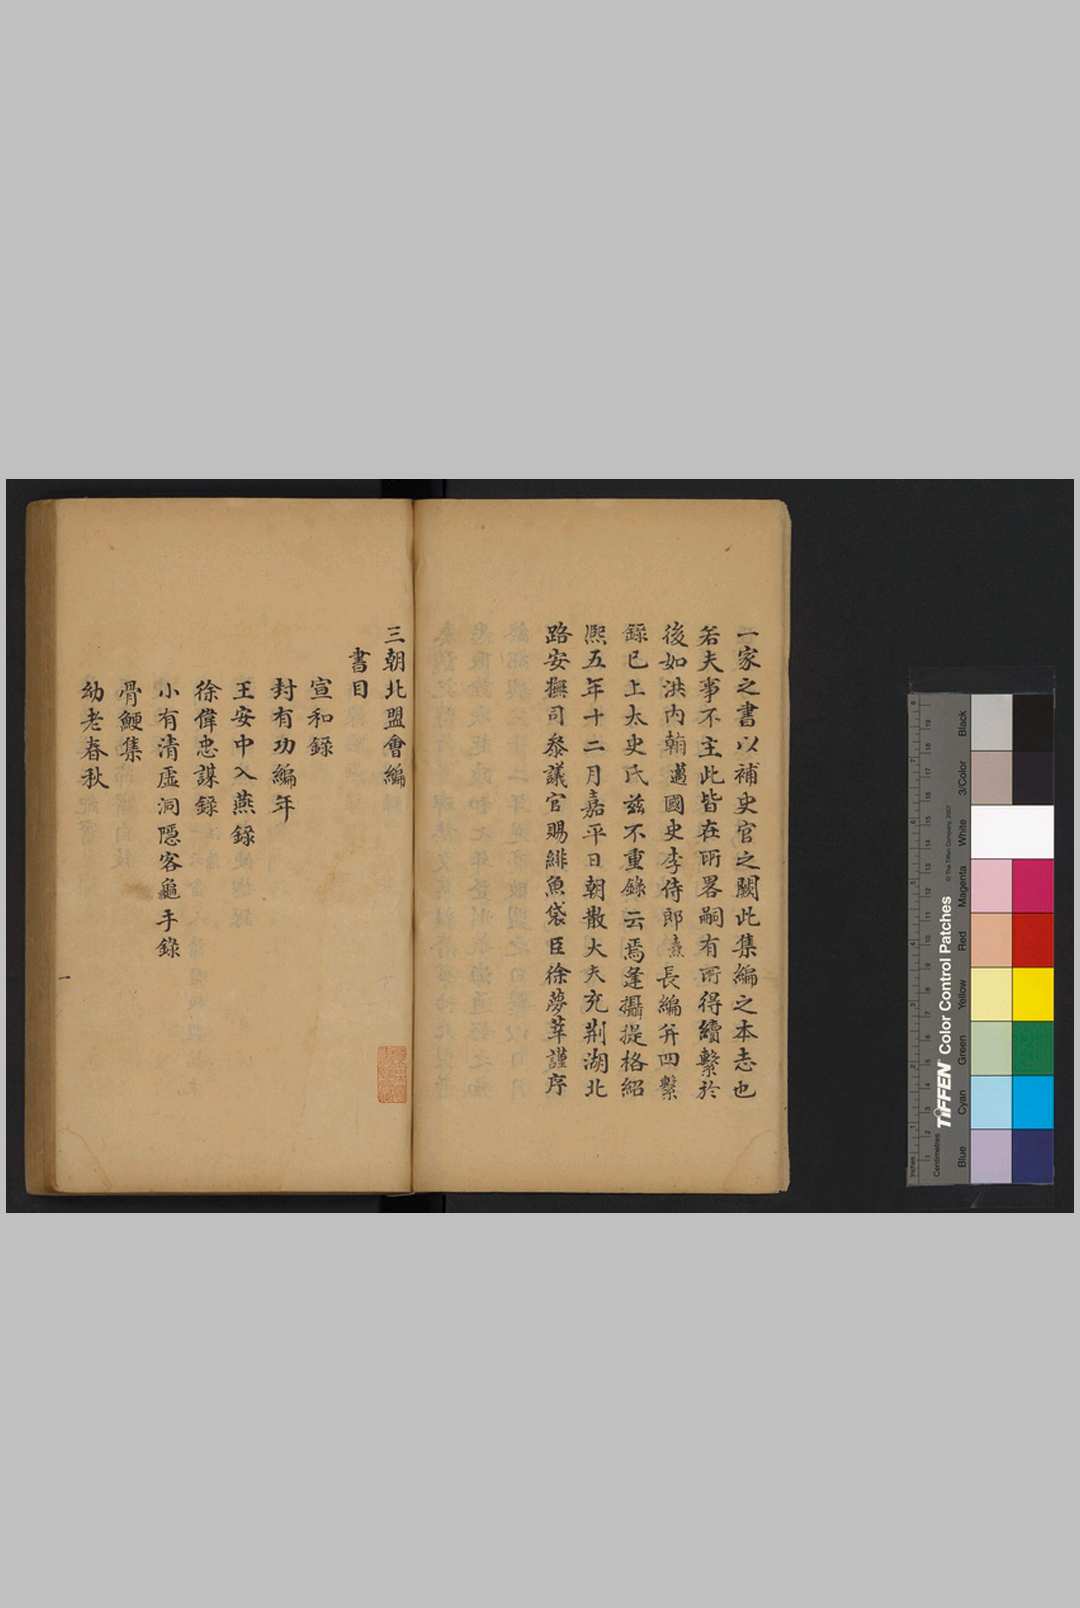 一家之書以補史官之闕此集編之本志也
若夫事不主此皆在所畧嗣有所得續繫於
後如洪内翰邁國史李侍郎燾長編并四繫
錄已上太史氏兹不重錄云焉逢攝提格紹
熈五年十二月嘉平日朝散大夫充荆湖北
路安撫司叅議官賜緋魚袋臣徐夢莘謹序
三朝北盟會編
書目
宣和錄
封有功編年
王安中入燕錄
徐偉忠謀錄
小有清虛洞隱客龜手錄
骨鯁集
幼老春秋
一
Black
3/Color
White
Magenta
Red
Yellow
Green
Cyan
Blue
TIFFEN Color Control Patches
© The Tiffen Company, 2007
Centimetres
Inches